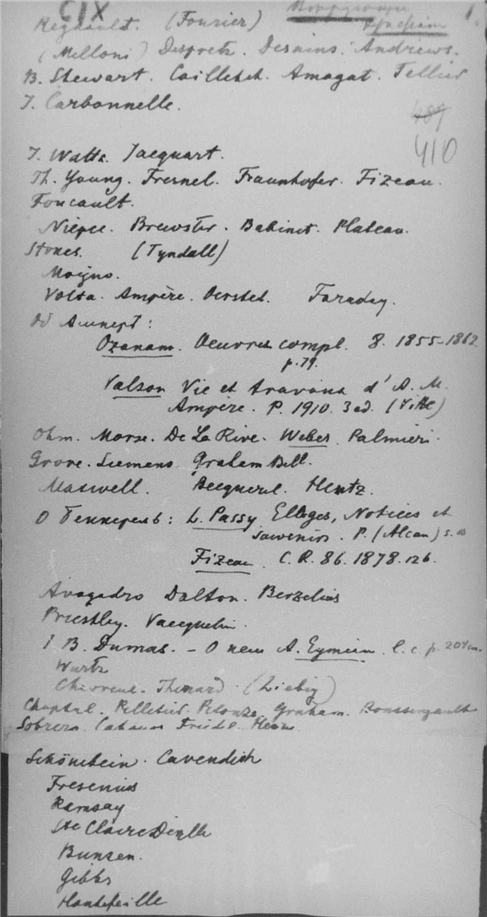 CIX 1.
Regnault. (Fourier)
(Melloni) Despretz. Desains. Andrews.
B. Stewart. Cailletet. Amagat. Tellier
J. Carbonnelle.
409
410
J. Watt. Jacquart.
Th. Young. Fresnel. Fraunhofer. Fizeau.
Foucault.
Niepce. Brewster. Babinet. Plateau.
Stokes. (Tyndall)
Moigno.
Volta. Ampère. Oersted. Faraday.
Об Ампере:
Ozanam. Oeuvres compl. 8. 1855-1862
p. 79.
Valson Vie et travaux d'A. M.
Ampère. P. 1910. 3 ed. (Vitte)
Ohm. Morse. De La Rive. Weber. Palmieri.
Grove. Siemens Graham Bell.
Maxwell. Becquerel. Hertz.
О Беккереле: L. Passy Eloges, Notices et
Souvenirs. P. (Alcan) s. a.
Fizeau. C. R. 86. 1878. 126.
Avogadro Dalton. Berzelius
Priestley. Vacquelin.
J. B. Dumas. - О нем A. Eymieu. l. c. p. 204
Wurtz
Chevreul. Thenard. (Liebig)
Chaptal. Pelletier. Pelouze. Graham. Boussingault
Sobrero. Cahours Friedel.
Schönbein. Cavendish
Fresenius
Ramsay
Ste Claire Deville
Bunsen.
Gibbs
Hautefeille